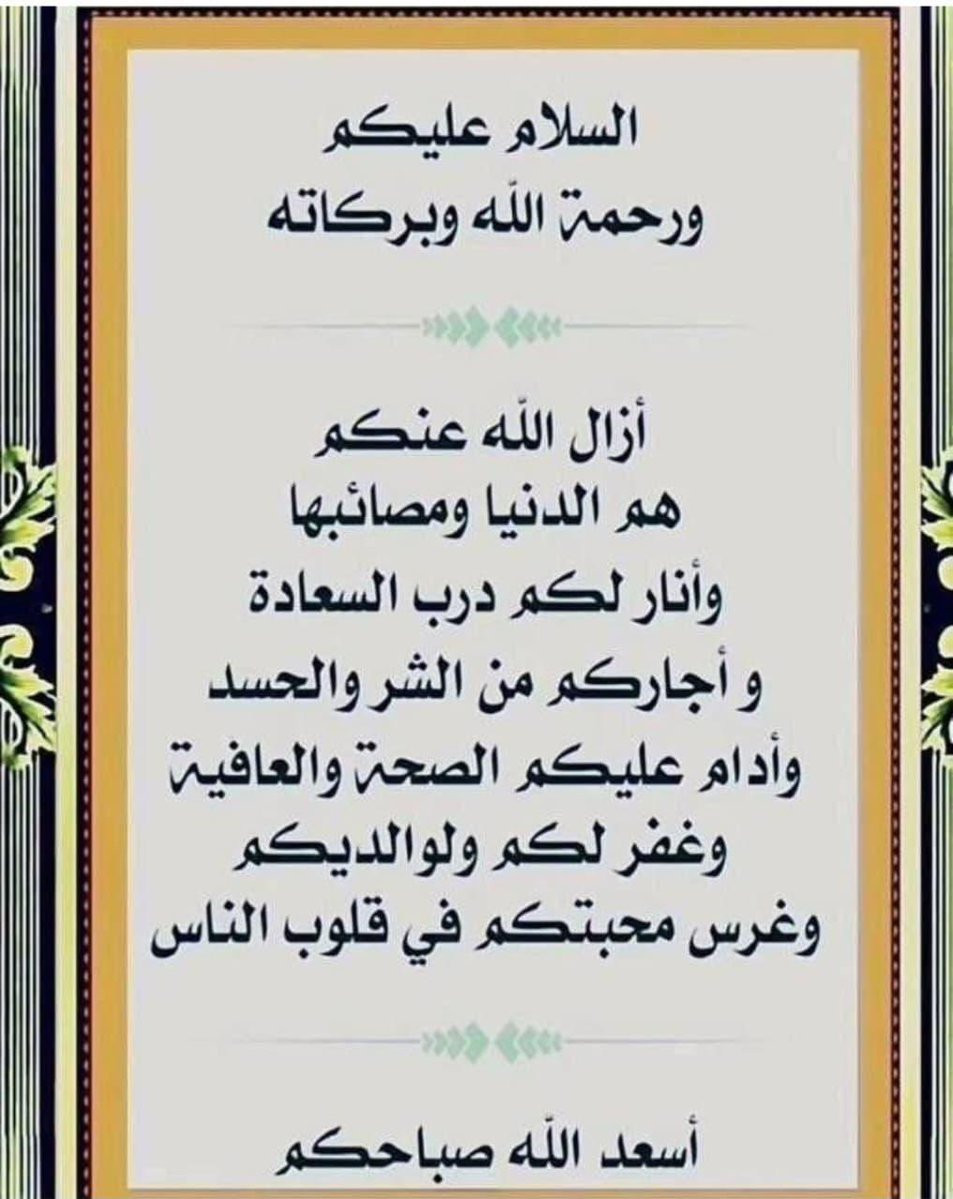 السلام عليكم
ورحمة الله وبركاته
أزال الله عنكم
هم الدنيا ومصائبها
وأنار لكم درب السعادة
و أجاركم من الشر والحسد
وأدام عليكم الصحة والعافية
وغفر لكم ولوالديكم
وغرس محبتكم في قلوب الناس
أسعد الله صباحكم